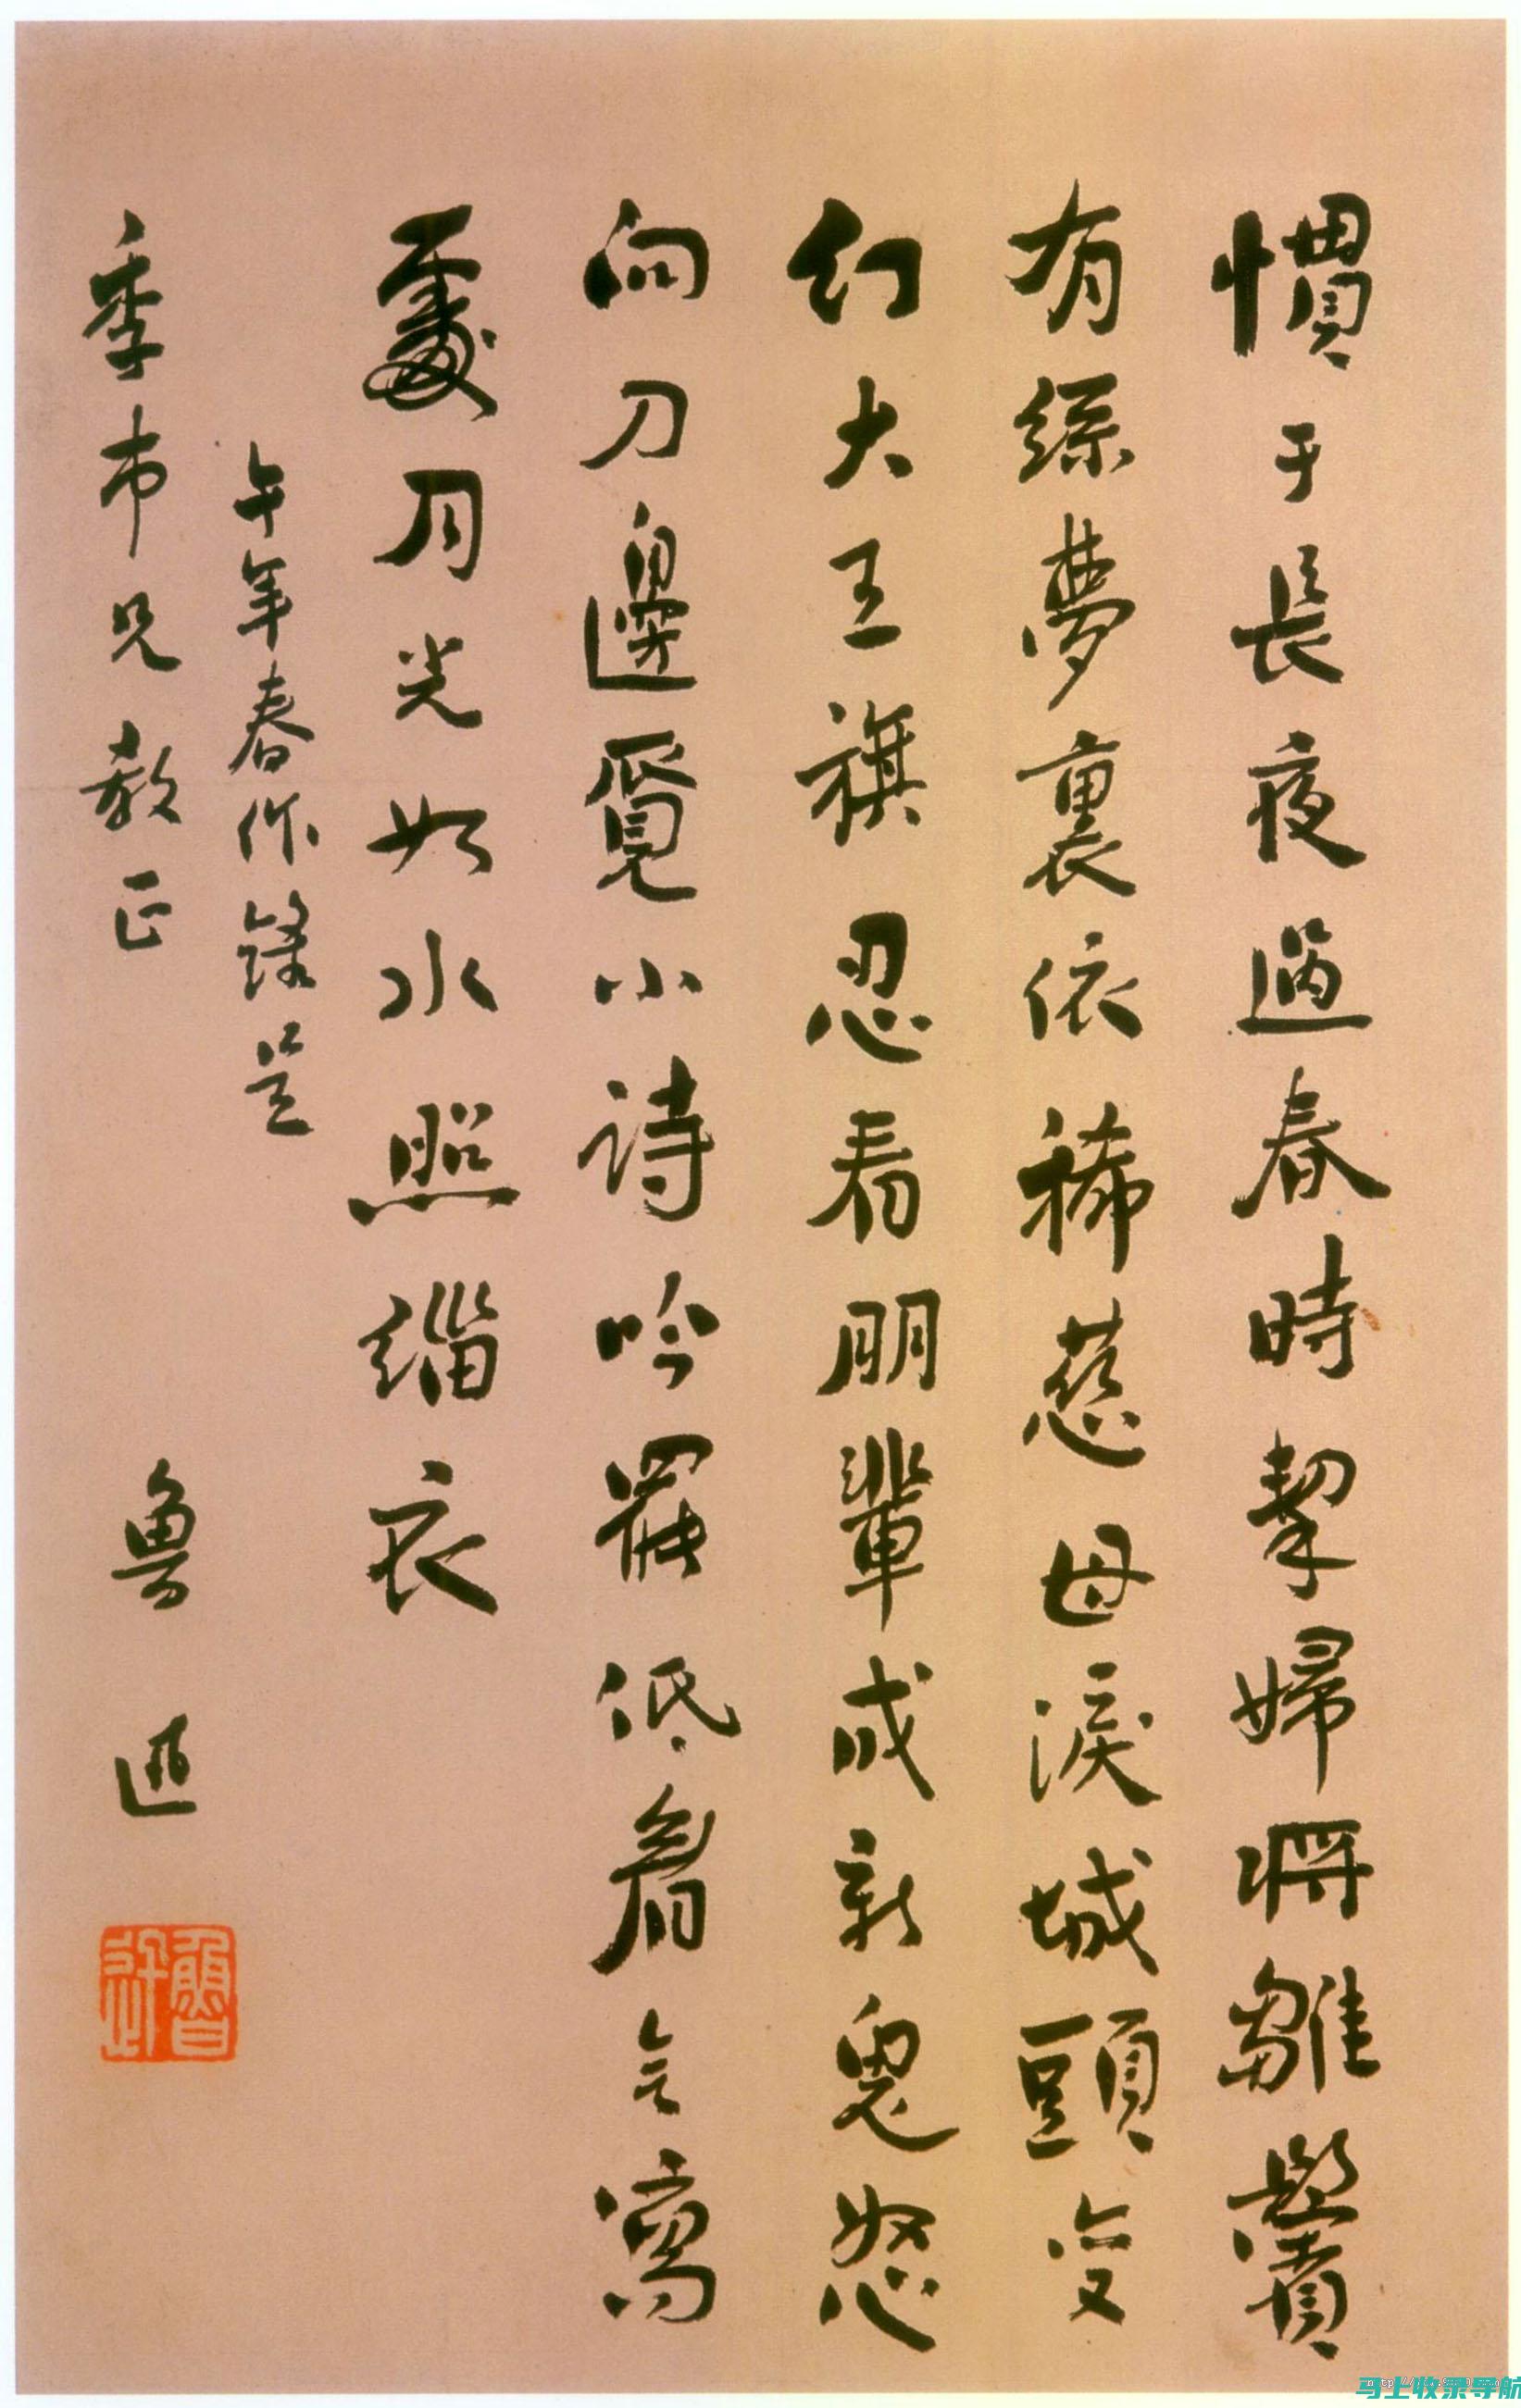 慣于長夜過春時挈婦將雛鬢
有絲夢裏依稀慈母淚城頭變
幻大王旗忍看朋輩成新鬼怒
向刀邊覓小詩吟罷低眉無寫
處月光如水照緇衣
午年春作錄呈
季巿兄教正
魯迅
魯迅
马上收录导航